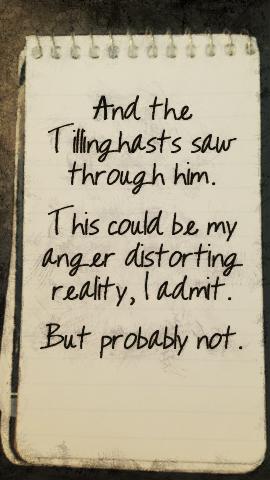 And the
Tillinghasts saw
through him.
This could be my
anger distorting
reality, I admit.
But probably not.